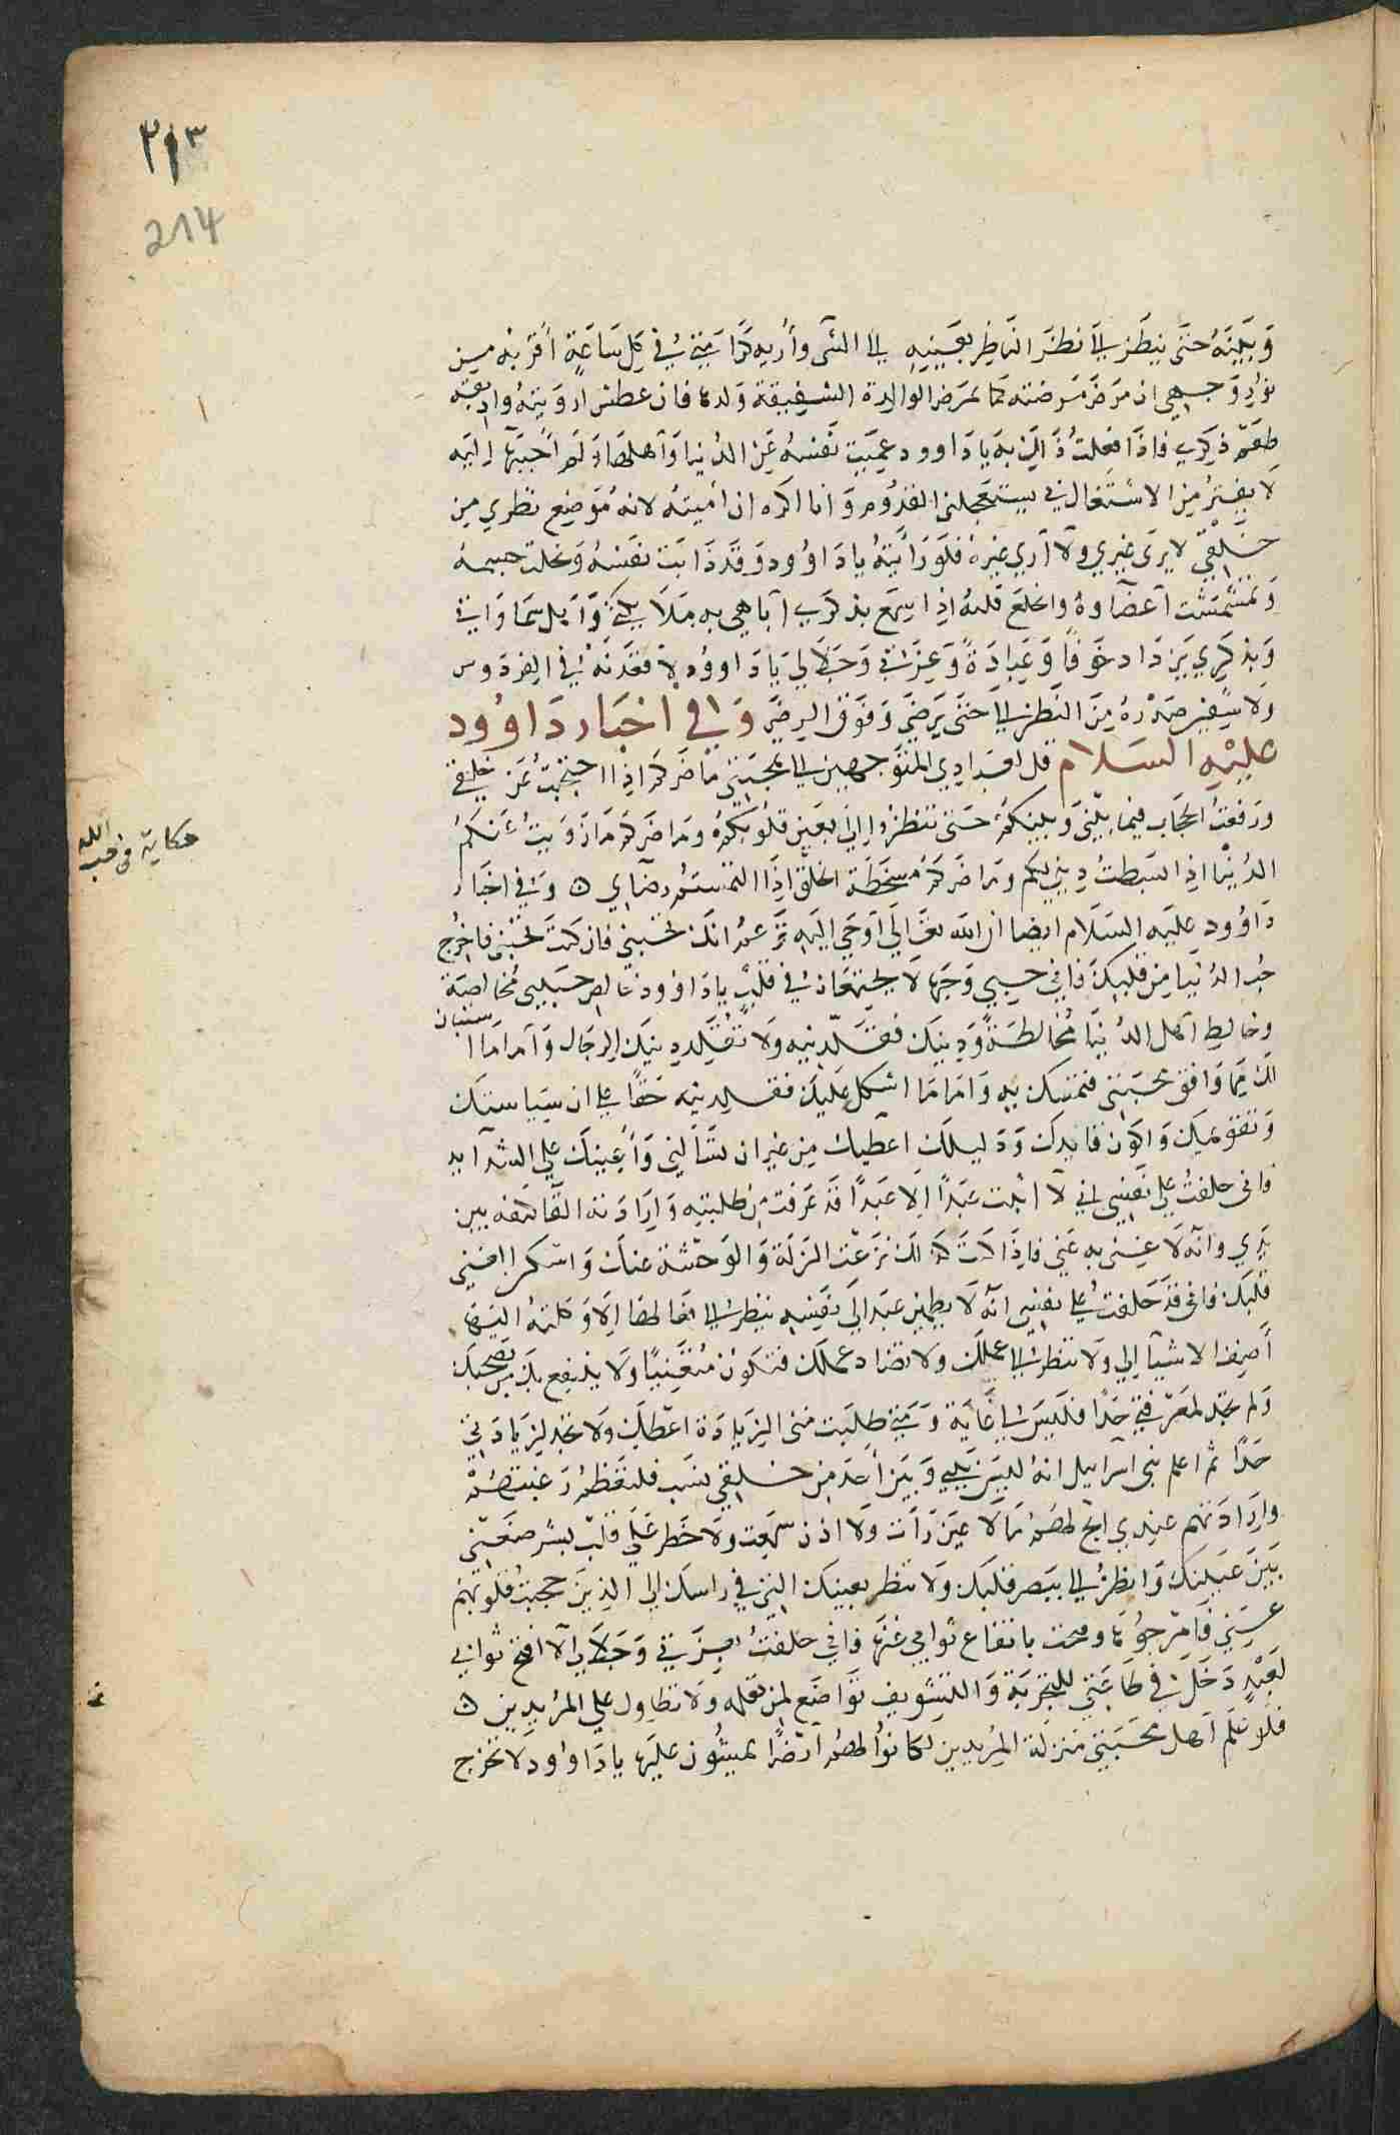 ٢١٣
214
وَبَيْنَهُ حتى ينظر إليّ نظر الناظر بعينيه إلى الشى وأريه كرامتي في كل ساعة أقربه من
نور وجهي ان مرض مرضته كما تمرض الوالدة الشفيقة ولدها فان عطش ارويته واذيقه
طعم ذكري فاذا فعلت ذلك به يا داوود عميت نفسه عن الدنيا وأهلها ولم أحببها إليه
لا يفتر من الاشتغال بي يستعجلني القدوم وانا اكره ان أميته لانه موضع نظري من
خلقي لا يرى غيري ولا أري غيره فلو رأيته يا داوود وقد ذابت نفسه ونحل جسمه
وتهشمت أعضاوه وانخلع قلبه اذا سمع بذكري أباهي به ملائكتي وأهل سماواتي
وبذكري يزداد خوفا وعبادة وعزتي وجلالي يا داوود لاقعدنه في الفردوس
ولاشفين صدره من النظر إليّ حتى يرضى وفوق الرضى وفي اخبار داوود
عليه السلام قل لعبادي المتوجهين إلى بمحبتي ما ضركم اذا احتجبت عن خلقي
ورفعت الحجاب فيما بيني وبينكم حتى تنظروا إلي بعين قلوبكم وما ضركم ما زويت عنكم
الدنيا اذا بسطت ديني لكم وما ضركم مسخطة الخلق اذا التمستم رضاي ه وفي اخبار
داوود عليه السلام ايضا ان الله تعالى أوحى اليه تزعم انك تحبني فان كنت تحبني فاخرج
حب الدنيا من قلبك فان حبي وحبها لا يجتمعان في قلب يا داوود خالص حبيبي مخالصة
وخالط اهل الدنيا مخالطة ودينك فقلدنيه ولا تقلد دينك الرجال وأما ما استبان
لك مما وافق محبتي فتمسك به واما ما اشكل عليك فقلدنيه حقا علي ان سياستك
وتقويمك واكون قايدك ودليلك اعطيك من غير ان تسألني وأعينك على الشدايد
فاني حلفت على نفسي اني لا اثيب عبدا الا عبدا قد عرفت من طلبته وإرادته القا كنفه بين
يدي وانه لا غنى به عني فاذا كنت كذلك نزعت الذلة والوحشة عنك واسكن الغنى
قلبك فاني قد حلفت على نفسي انه لا يطمئن عبد إلى نفسه ينظر إلى فعالها إلا وكلته اليها
أضف الاشيا إلي ولا تنظر إلى عملك ولا تضاد عملك فتكون متعنيا ولا ينتفع بك من يصحبك
ولم تجد لمعرفتي حدا فليس لها غاية ومتى طلبت مني الزيادة اعطك ولا تجد لزيادتي
حدا ثم اعلم بني اسرايل انه ليس بيني وبين أحد من خلقي نسب فلتعظم رغبتهم
وإرادتهم عندي ابح لهم ما لا عين رأت ولا اذن سمعت ولا خطر على قلب بشر ضعني
بين عينيك وانظر إلي ببصر قلبك ولا تنظر بعينك التي في راسك إلى الذين حجبت قلوبهم
عني فامرجوها وسحت بانقطاع ثوابي عنها فاني حلفت بعزتي وجلالي لا افتح ثوابي
لعبد دخل في طاعتي للتجربة والتسويف تواضع لمن تعلمه ولا تطاول علي المريدين ه
فلو علم أهل محبتي منزلة المريدين لكانوا لهم أرضا يمشون عليها يا داوود لا تخرج
حكاية في حب الله